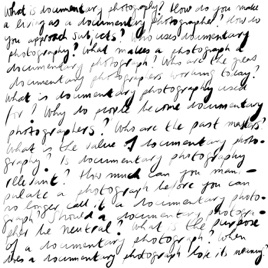 What is documentary photography? How do you make
a living as a documentary photographer? How do
you approach subjects? Who uses documentary
photography? What makes a photograph a
documentary photograph? Who are the great
documentary photographers working today?
What is documentary photography used
for? Why do people become documentary
photographers? Who are the past masters?
What is the value of documentary photo-
graphy? Is documentary photography
relevant? How much can you mani-
pulate a photograph before you can
no longer call it a documentary photo-
graph? Should a documentary photogra-
pher be neutral? What is the purpose
of a documentary photograph? When
does a documentary photograph lose its meaning?